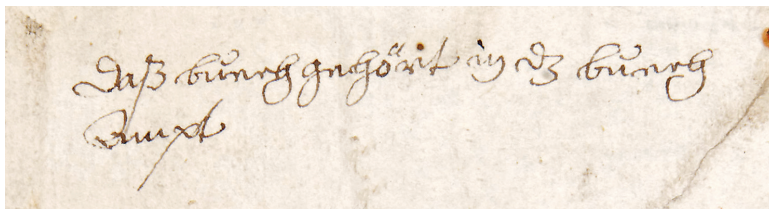 daß bůech gehört in dz bůech
Ampt